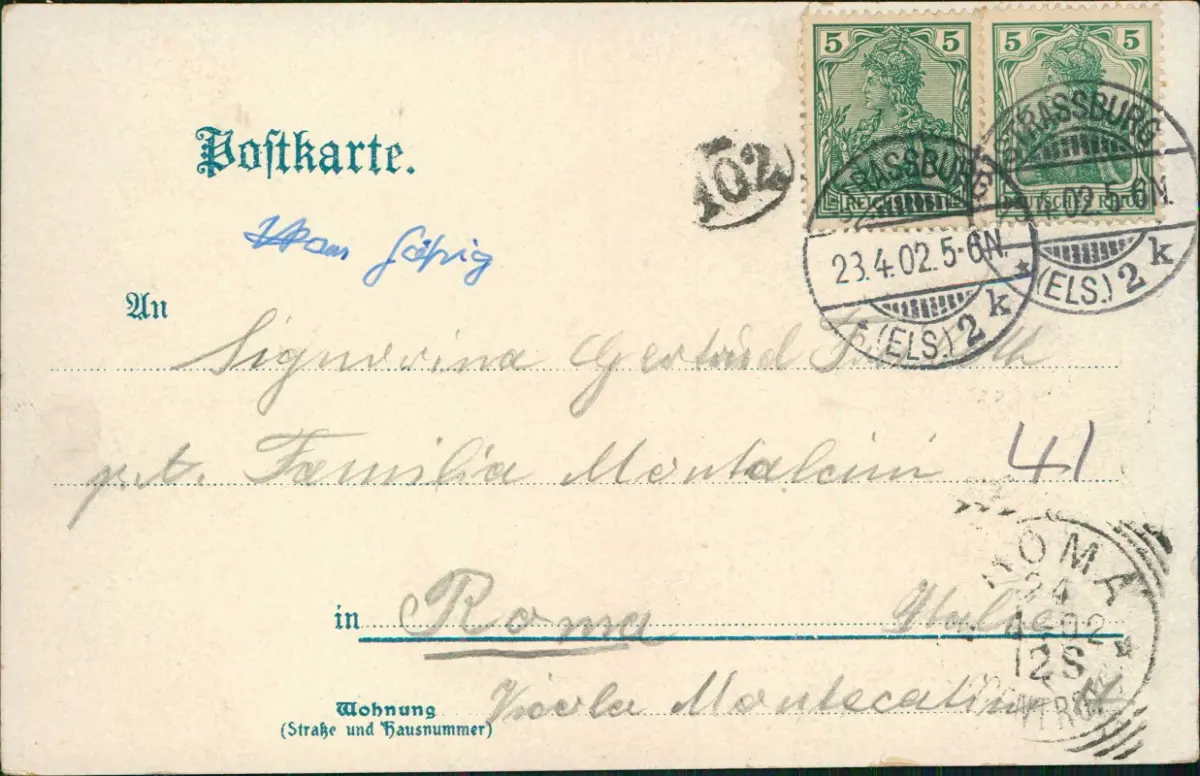 5 5 5 5
REICHSPOST DEUTSCHES REICH
Postkarte.
102
STRASSBURG
23.4.02.5-6N.
* (ELS.) 2 k
STRASSBURG
4.02.5-6N.
* (ELS.) 2 k
An
Signorina Gertrud
p.t. Familia Montalcini 41
ROMA
24
4-02
12S
in Roma Italie
Wohnung
(Straße und Hausnummer)
Vicolo Montecatini